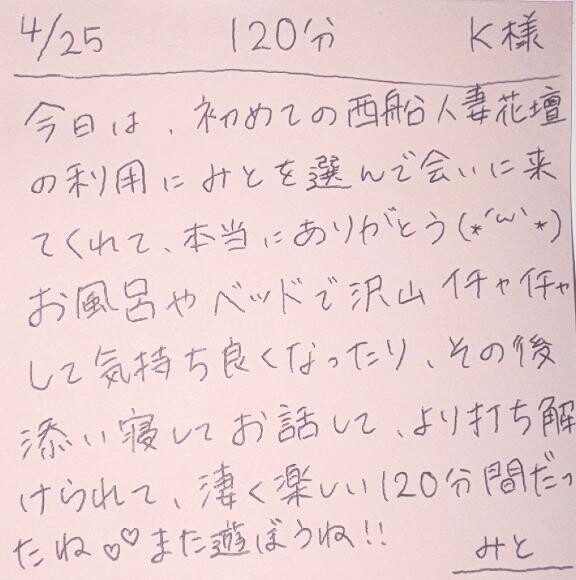 4/25 120分 K様
今日は、初めての西船人妻花壇
の利用にみとを選んで会いに来
てくれて、本当にありがとう(*´ω`*)
お風呂やベッドで沢山イチャイチャ
して気持ち良くなったり、その後
添い寝してお話して、より打ち解
けられて、凄く楽しい120分間だっ
たね♡♡また遊ぼうね!!
みと